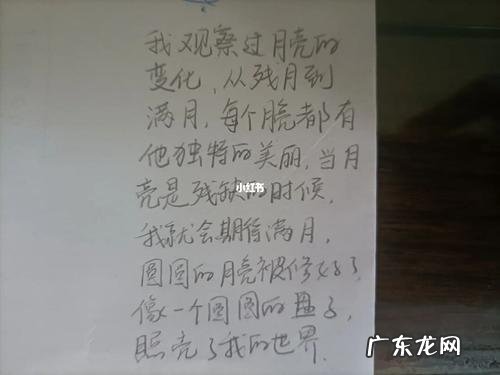 我观察过月亮的
变化,从残月到
满月,每个月亮都有
他独特的美丽,当月
亮是残缺的时候,
我就会期待满月,
圆圆的月亮被修好了,
像一个圆圆的盘子,
照亮了我的世界.
小红书
广东龙网